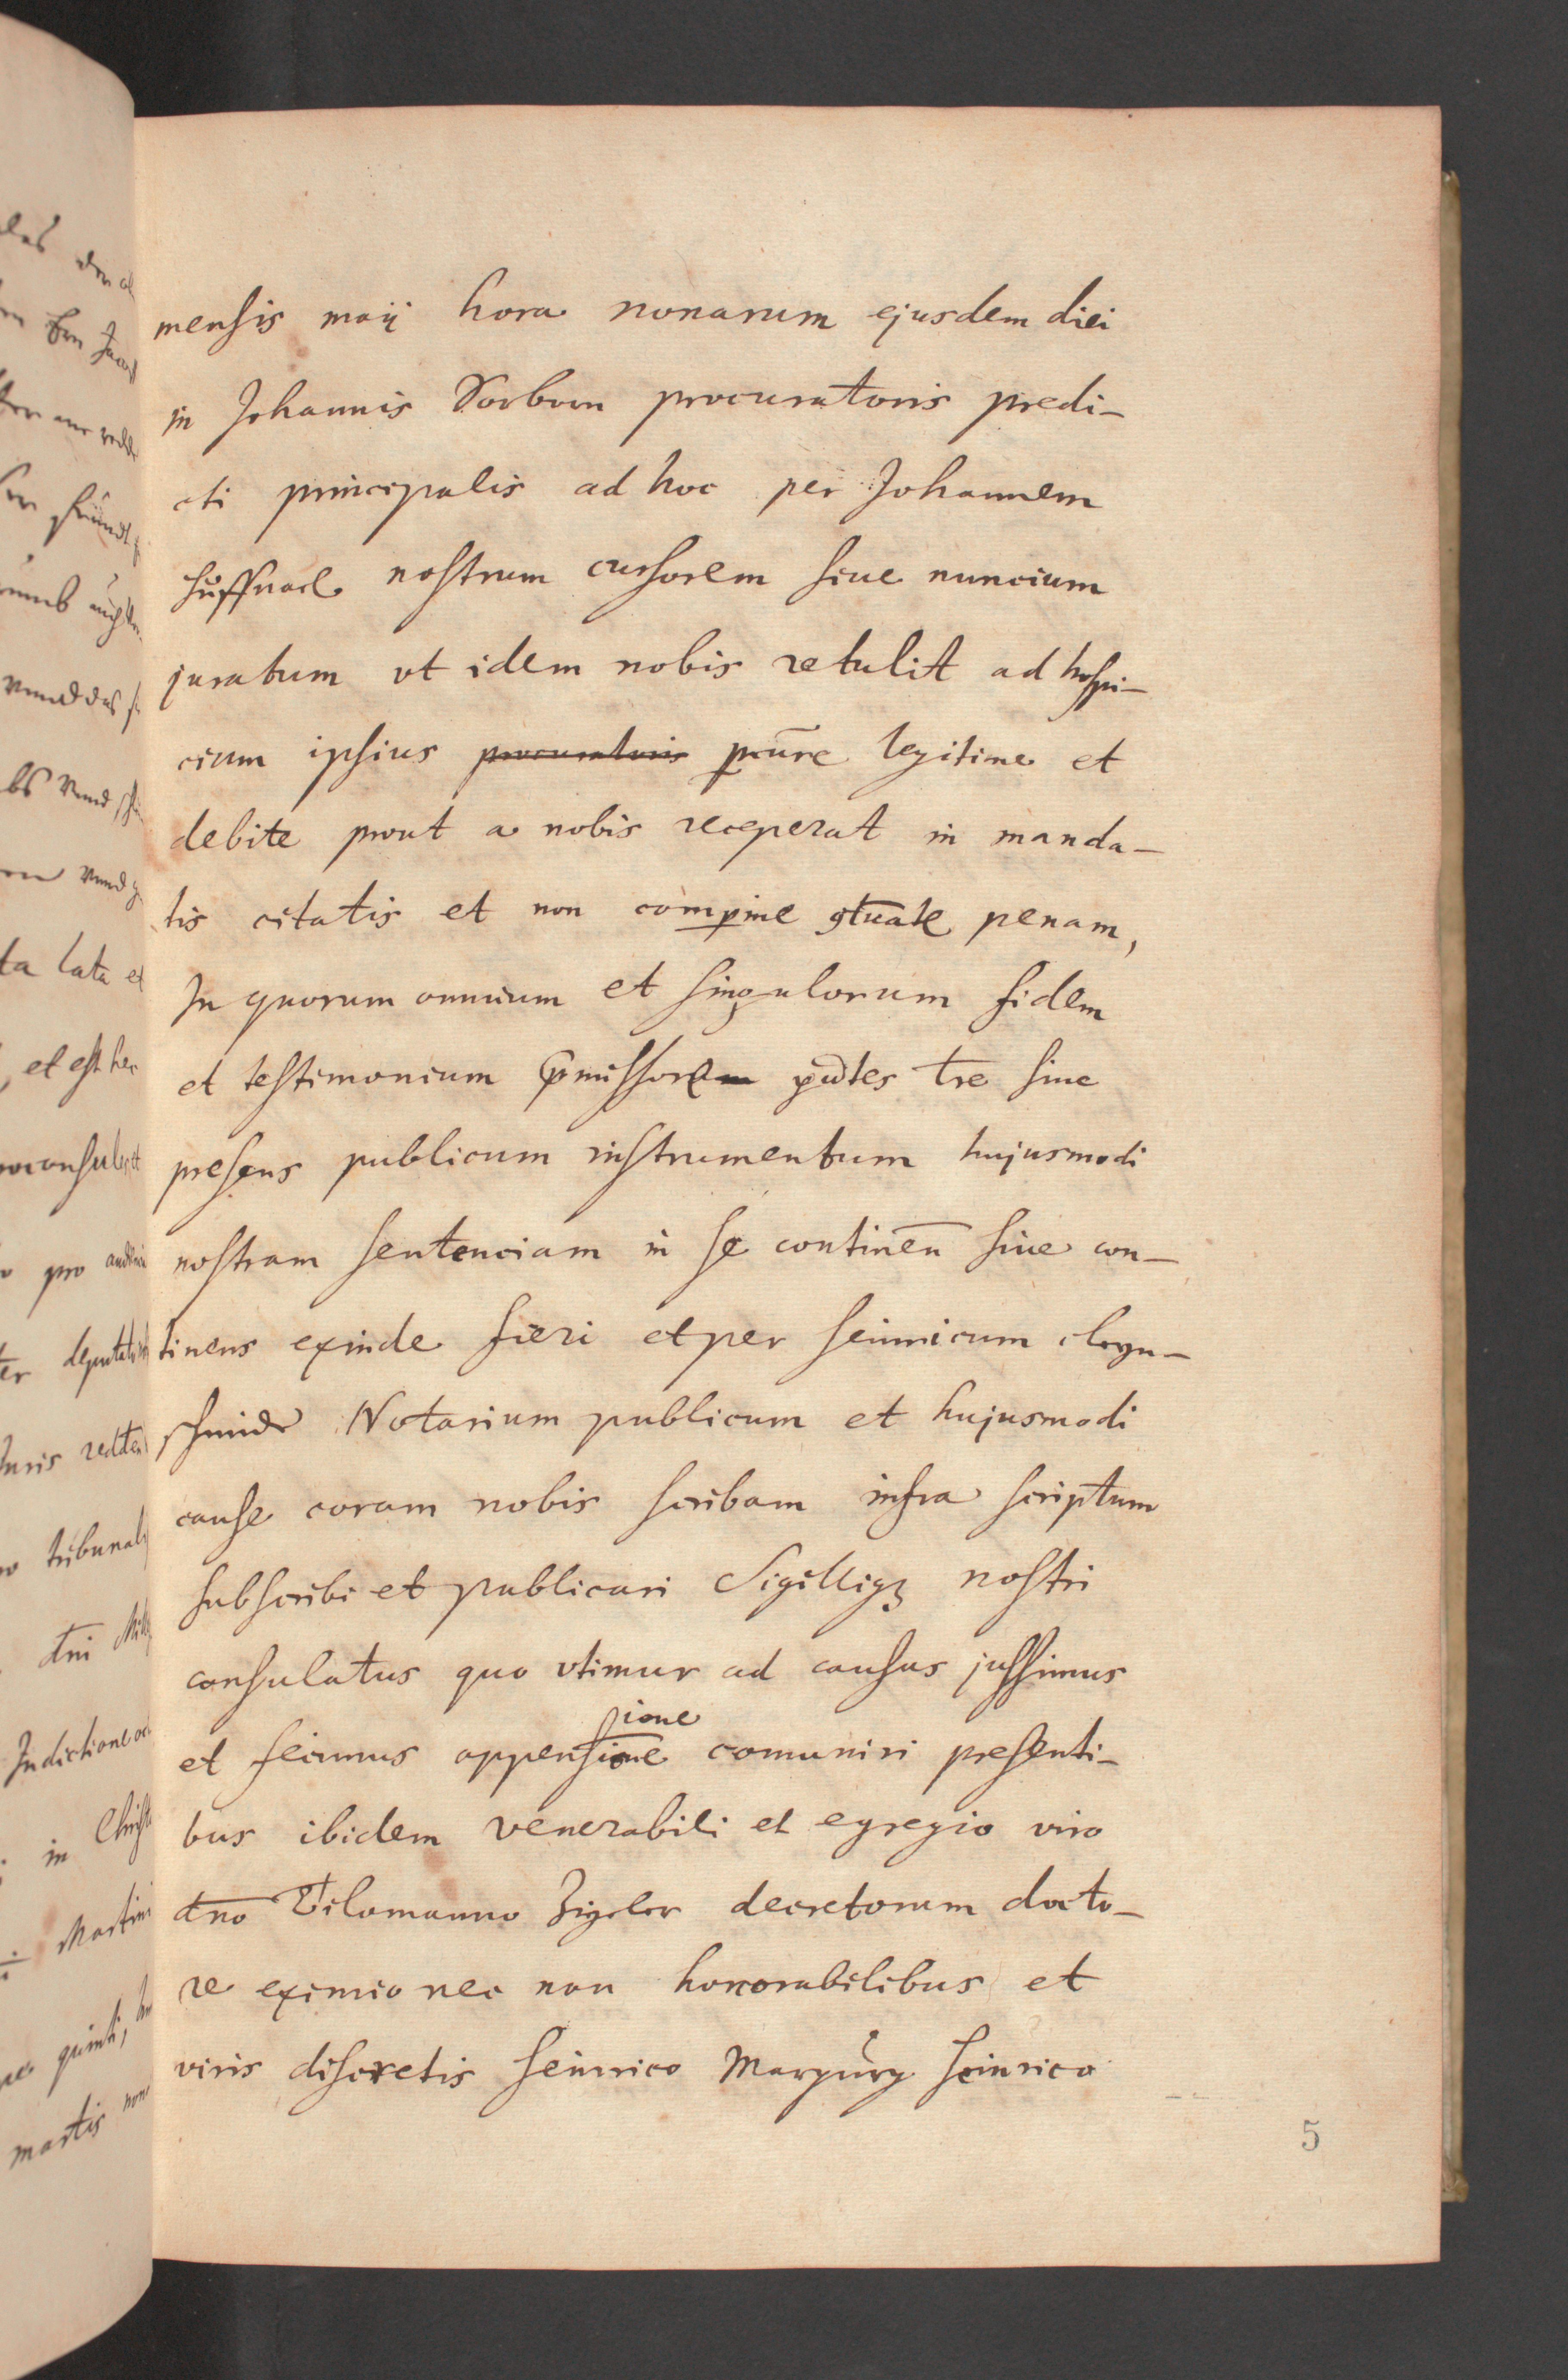 mensis maij hora nonarum ejusdem diei
in Johannis procuratoris predi–
cti principalis ad hoc per Johannem
nostrum cursorem siue nuncium
juratum vt idem nobis retulit ad hospi–
cium ipsius procuratoris legitime et
debite prout a nobis receperat in manda–
tis citatis et non penam,
In quorum omnium et singulorum fidem
et testimonium p̄missorum tre siue
presens publicum instrumentum hujusmodi
nostram sentenciam in se continēn siue con–
tinens exinde fieri et per heinricum
Notarium publicum et hujusmodi
cause coram nobis scribam infra scriptum
subscribi et publicari Sigilliqꝫ nostri
consulatus quo vtimur ad causas jussimus
et fecimus appensione sione comuniri presenti–
bus ibidem venerabili et egregio viro
dno Tilomanno Zigeler decretorum docto–
re eximio nec non honorabilibus et
viris discretis heinrico Margurg heinrico
5